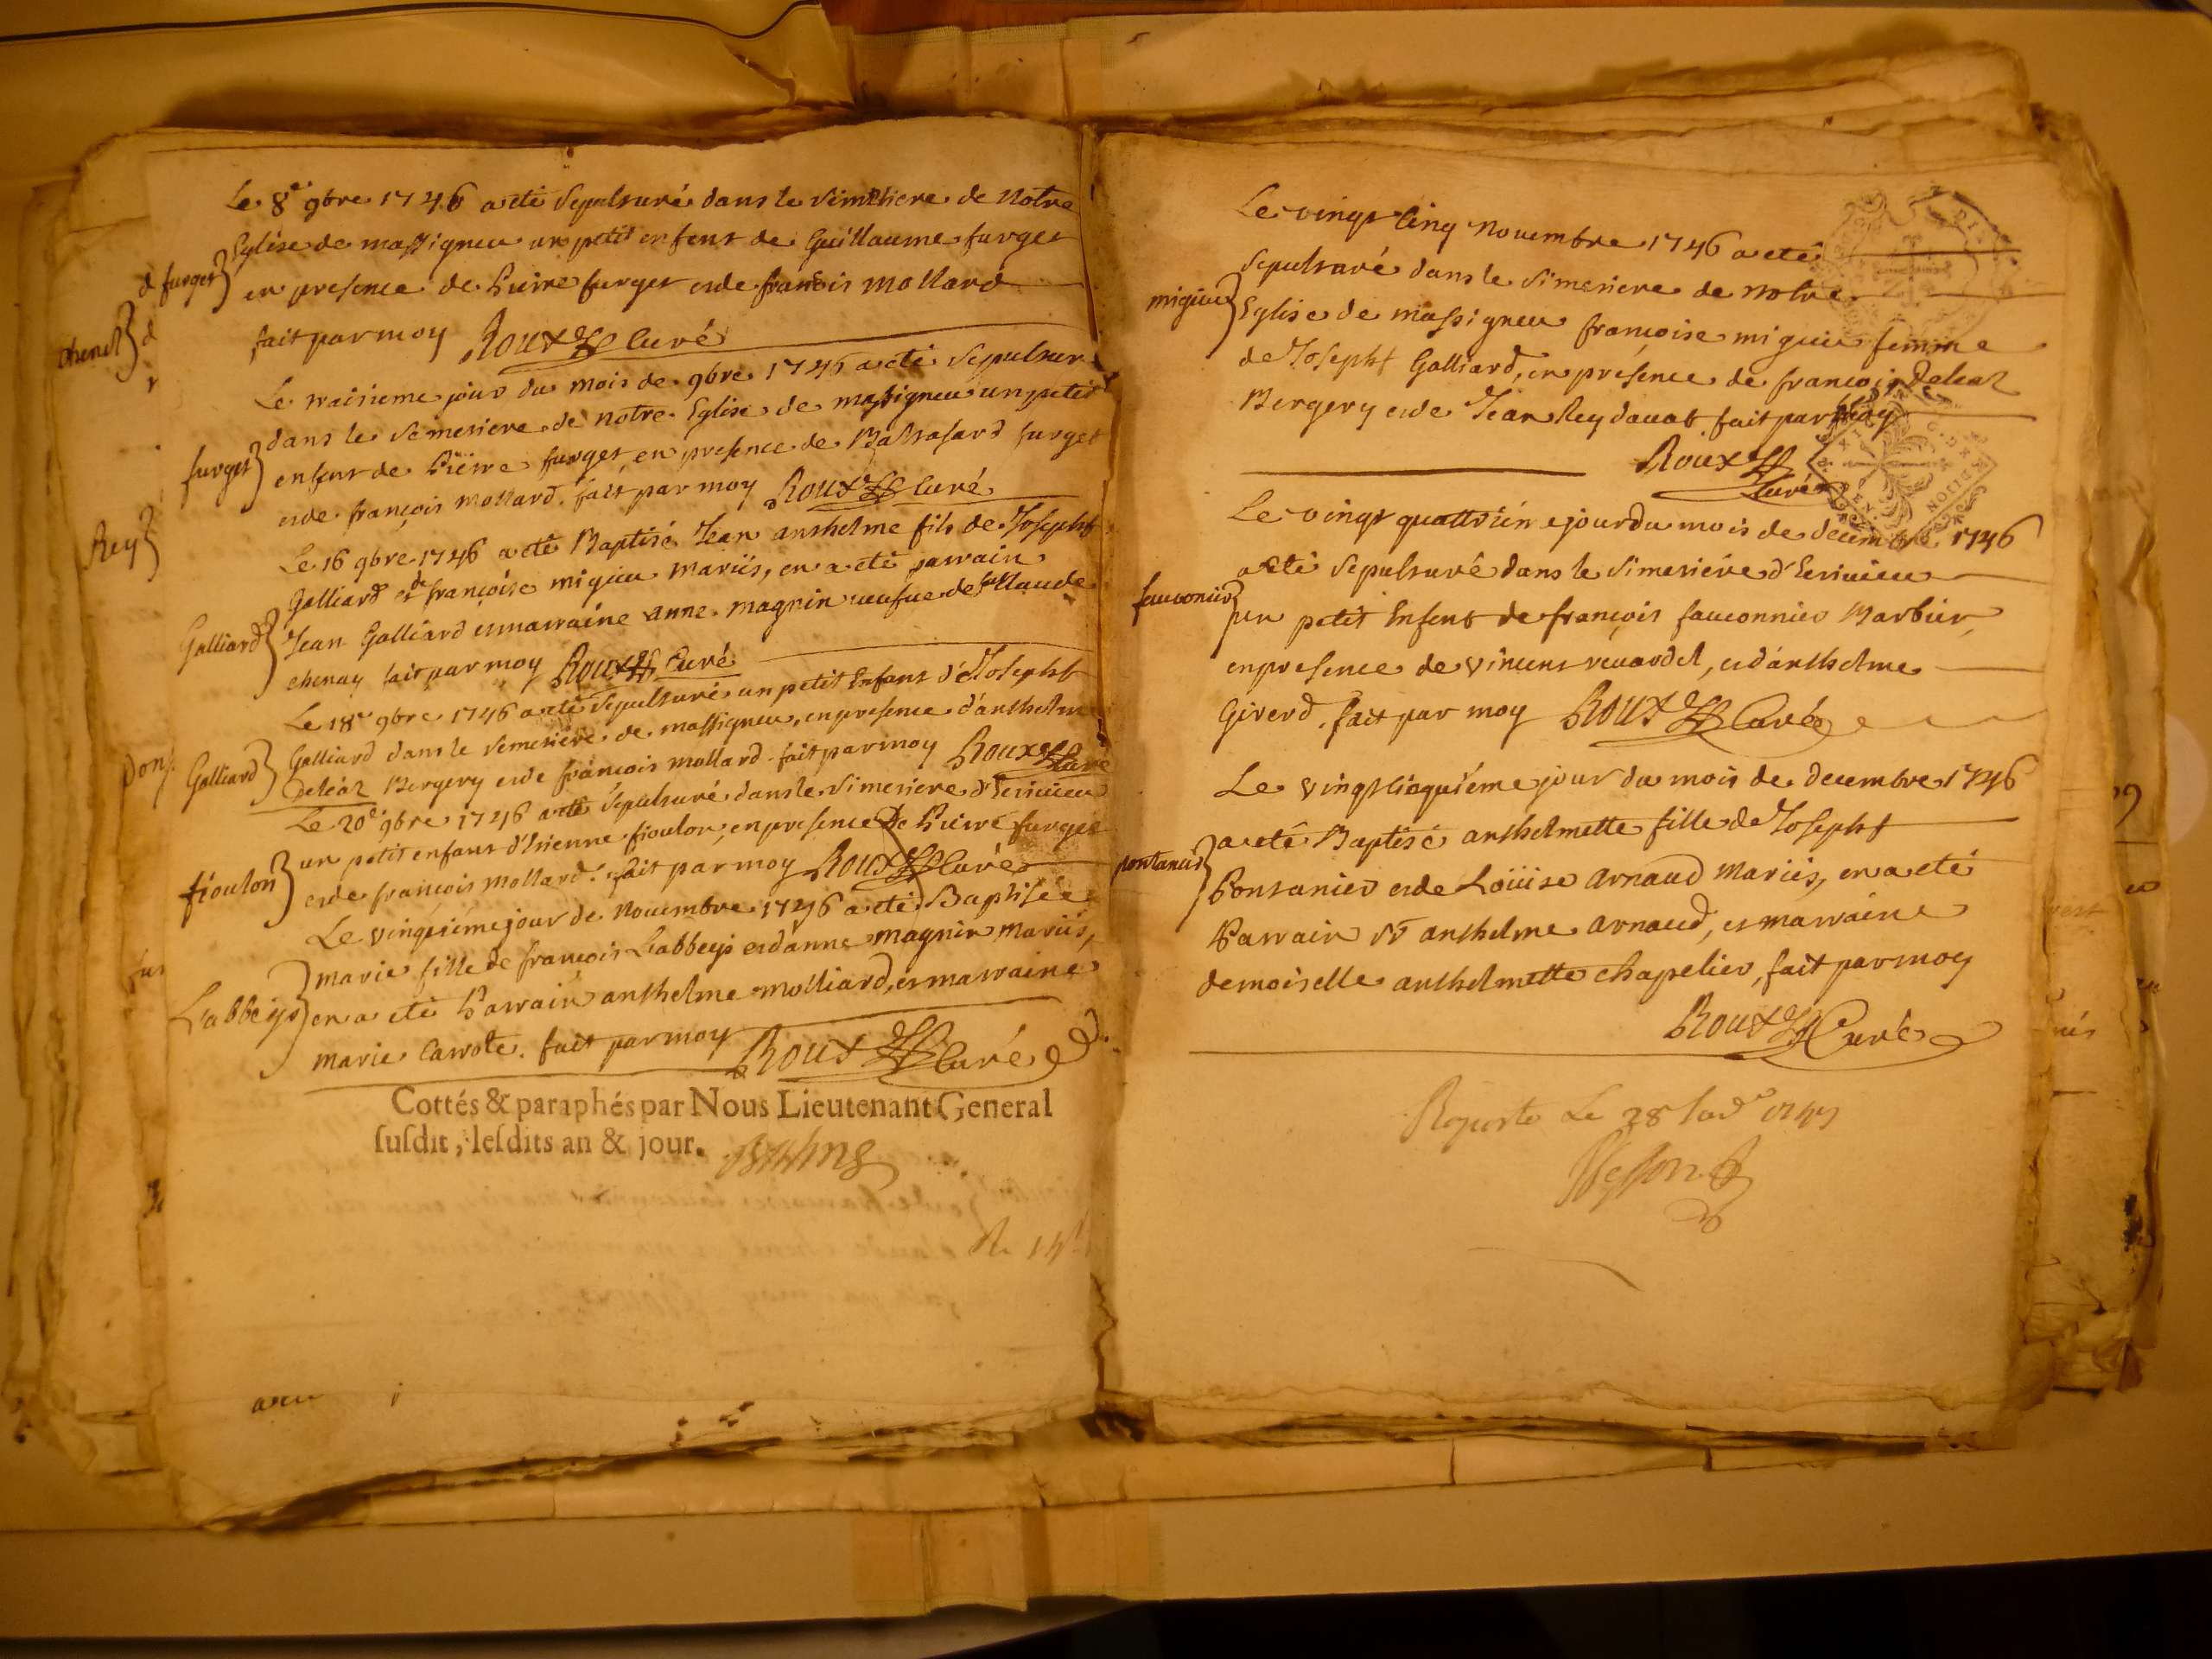 Le 8e 9bre 1746 a eté sepulturé dans le simthiere de notre
d furget} Eglise de massigneu un petit enfent de Guillaume furget
en presence de Pierre furget et de francois mollard
fait par moy Roux Curé
Le traisieme jour du mois de 9bre 1746 a eté sepultur
dans le semetiere de notre Eglise de massigneu un petit
furget} enfent de Pierre furget, en presence de Baltasard furget
et de françois mollard. fait par moy Roux Curé
Le 16 9bre 1746 a eté Baptisé Jean anthelme fils de Josepht
Galliard et de françoise migieu mariés, en a eté parrain
Galliard} Jean Galliard et marraine anne magnin veufue de Claude
chenay fait par moy Roux Curé
Le 18e 9bre 1746 a eté sepulturé un petit Enfant d'Josepht
Galliard} Galliard dans le semetiére de massigneu, en presence d'anthelm
Deléaz Bergery et de françois mollard. fait par moy Roux Curé
Le 20e 9bre 1746 a eté sepulturé dans le simetiere d'Ecrivieu
fioulon} un petit enfant d'Etienne fioulon, en presence De Pierre furget
et de françois mollard. fait par moy Roux Curé
Le vingtiéme jour de Nouembre 1746 a eté Baptisée
marie fille de françois Labbeys et d'anne magnin mariés,
Labbeys} en a eté Parrain anthelme molliard, et marraine
marie Carrote. fait par moy Roux Curé
Cottés & paraphés par Nous Lieutenant General
susdit, lesdits an & jour.
chenel}
Rey}
Le vingt Cinq Nouembre 1746 a eté
sepulturé dans le simetiere de notre
migieu} Eglise de massigneu françoise migieu femme
de Josepht Galliard, en présence de françois Deleaz
Bergery et de Jean Rey davat fait par moy
Roux
Curé
Le vingt quattriéme jour du mois de decembre 1746
a eté sepulturé dans le simetiére d'Ecrivieu
fauconnier} un petit Enfent de françois fauconnier Barbier,
en presence de vincent reuardel, et d'anthelme
Girerd. fait par moy Roux Curé
Le vingt cinquiéme jour du mois de decembre 1746
a eté Baptisé anthelmette fille de Josepht
pontanier} Pontanier et de Loüise Arnaud mariés, en a eté
Parrain Sr anthelme Arnaud, et marraine
demoiselle anthelmette chapelier, fait par moy
Roux Curé